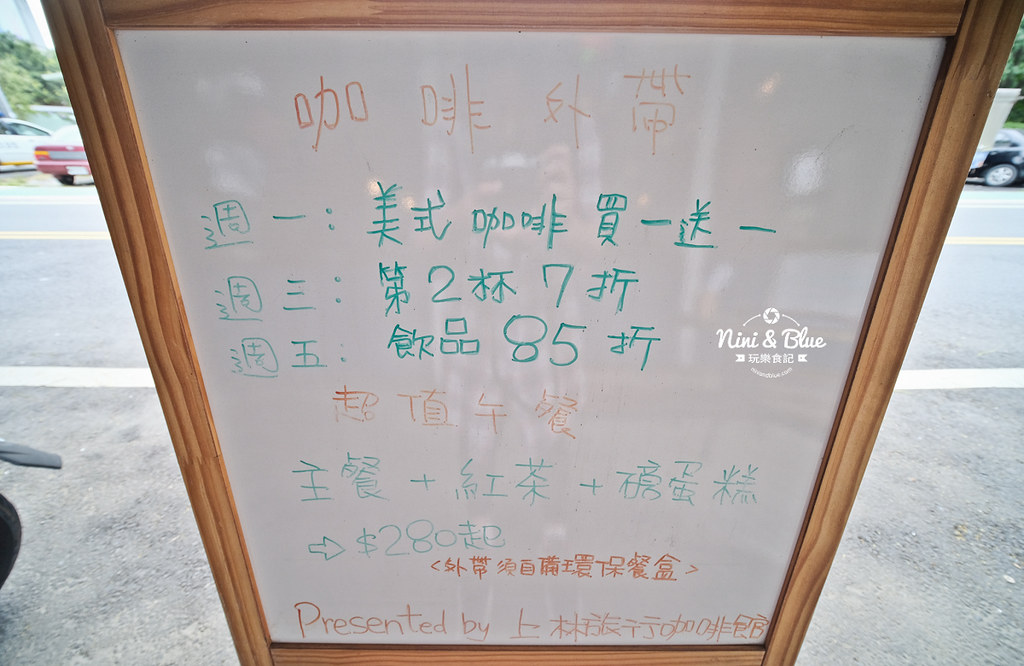 咖啡外帶
週一:美式咖啡買一送一
週三:第2杯7折
週五:飲品85折
超值午餐
主餐+紅茶+磅蛋糕
⇨$280起
<外帶須自備環保餐盒>
Presented by 上林旅行咖啡館
Nini & Blue
玩樂食記
niniandblue.com